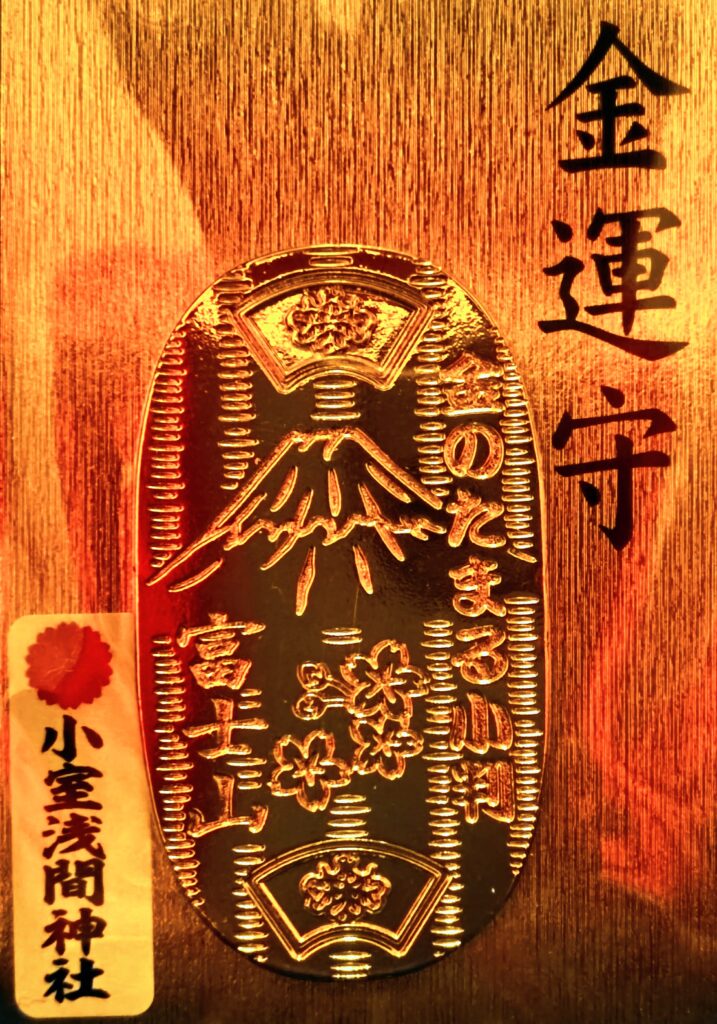 金運守
金のたまる小判
富士山
小室浅間神社